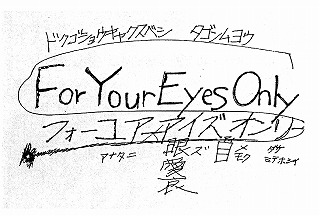 ドクゴショウキャクスベシ　タゴンムヨウ
For Your Eyes Only
フォーユアアイズオンリー
アナタニ　眼ズ　目　メ　モク　ダケ　ミテホシイ
愛
哀